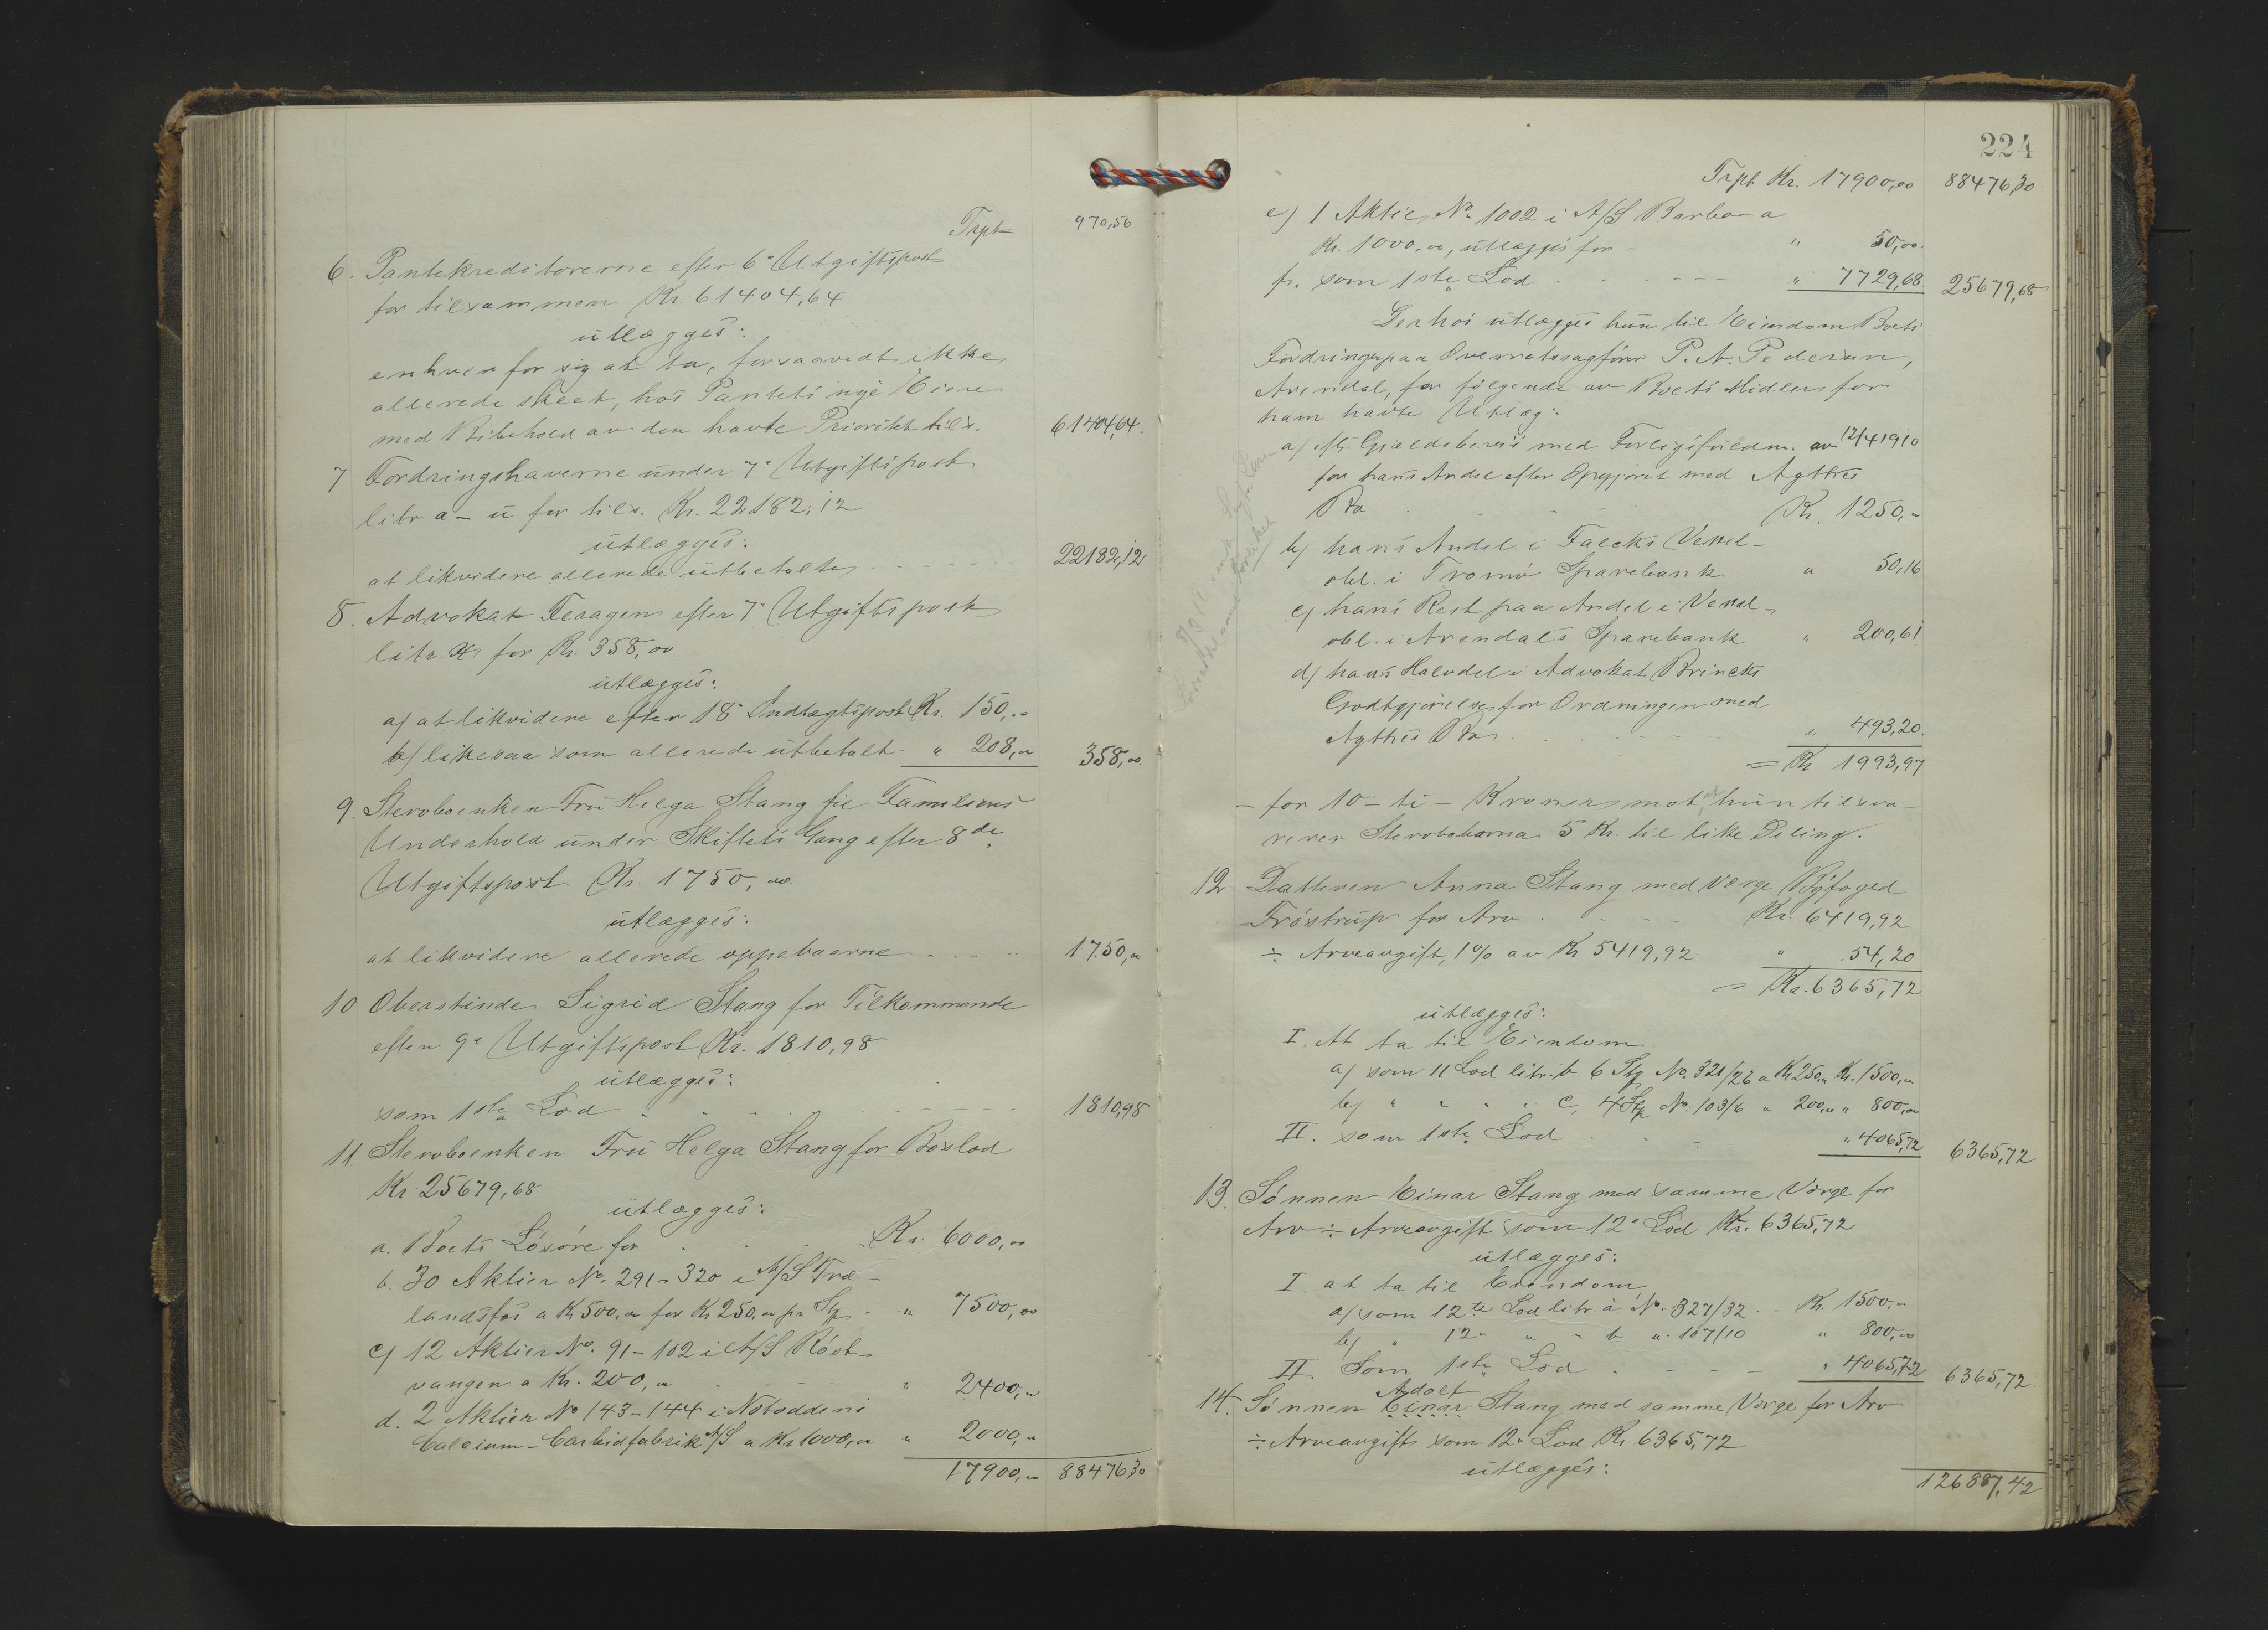 Trpt 970,56
6. Pantekreditorerne efter 6te Utgiftspost
for tilsammen Kr. 61404,64
utlægges:
enhver for sig at ta, forsaavidt ikke
allerede skeet, hos Pantets nye Eiere
med Bibehold av den havte Prioritet tils. 61404,64.
7 Fordringshaverne under 7de Utgiftspost
litr a - u for tils. Kr. 22182,12
utlægges:
at likvidere allerede utbetalte 22182,12
8. Advokat Feragen efter 7de Utgiftspost
litr. x for Kr. 358,00
utlægges:
a) at likvidere efter 18de Indtægtspost Kr. 150,00
b) likesaa som allerede utbetalt " 208,00 358,00.
9. Stervboenken Fru Helga Stang til Familiens
Underhold under Skiftets Gang efter 8de
Utgiftspost Kr. 1750,00.
utlægges:
at likvidere allerede oppebaarne 1750,00
10 Oberstinde Sigrid Stang for Tilkommende
efter 9de Utgiftspost Kr. 1810,98
utlægges:
som 1ste Lod 1810,98
11. Stervboenken Fru Helga Stang for Boslod
Kr 25679,68
utlægges:
a. Boets Løsøre for Kr. 6000,00
b. 30 Aktier No. 291-320 i A/S Træ-
landsfos a Kr 500,00 for Kr 250,00 pr. St. " 7500,00
c) 12 Aktier No. 91-102 i A/S Röd-
vangen a Kr. 200,00 " 2400,00
d. 2 Aktier No 143-144 i Notoddens
Calcium-Carbidfabrik A/S a Kr 1000,00 " 2000,00
17900,00 88476,30
224
Trpt Kr. 17900,00 88476,30
e) 1 Aktie No 1002 i A/S Barbara
Kr. 1000,00, utlægges for " 50,00.
f. som 1ste Lod " 7729,68 25679,68
Derhos utlægges hun til Eiendom Boets
Fordringer paa Overretssagfører P. A. Pedersen,
Arendal, for følgende av Boets Midler for
ham havte Utlæg:
a) iflg. Gjældsbevis med Forligsfuldm. av 12/4 1910
for hans Andel efter Opgjøret med Agthes
Bo Kr. 1250,00
b) hans Andel i Falcks Vexel-
obl. i Tromø Sparebank " 50,16
c) hans Rest paa Andel i Vexel-
obl. i Arendals Sparebank " 200,61
d) hans Halvdel i Advokat Brincks
Godtgjørelse for Ordningen med
Agthes Bo " 493,20.
= Kr 1993,97
- for 10 - ti - Kroner mot at hun tilsva-
rerer Stervbobarna 5 Kr. til like Deling.
12 Datteren Anna Stang med Værge Byfoged
Frøstrup for Arv Kr. 6419,92
÷ Arveavgift, 1% av Kr 5419,92 " 54,20
= Kr. 6365,72
utlægges:
I. At ta til Eiendom
a) som 11 Lod litr. b 6 St. No. 321/26 a Kr 250,00 Kr. 1500,00
b) " " " " c, 4 St. No. 103/6 a 200,00 " 800,00
II. som 1ste Lod " 4065,72 6365,72
13. Sønnen Einar Stang med samme Værge for
Arv ÷ Arveavgift som 12te Lod Kr. 6365,72
utlægges:
I. at ta til Eiendom
a) som 12te Lod litr. a. No. 327/32 Kr. 1500,00
b) " 12te " " b " 107/10 " 800,00
II. Som 1ste Lod " 4065,72 6365,72
Adolf
14. Sønnen Einar Stang med samme Værge for Arv
÷ Arveavgift som 12te Lod Kr. 6365,72
utlægges:
126887,42